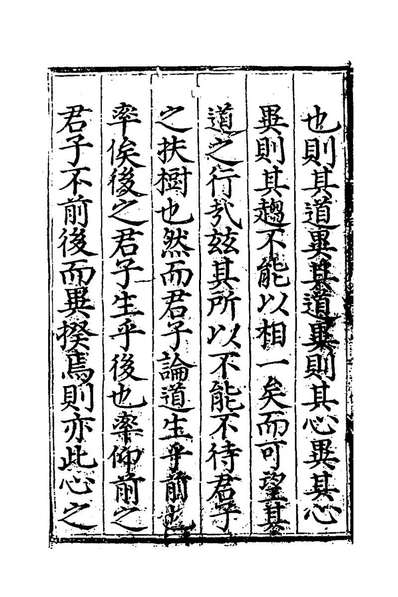 也則其道異其道異則其心異其心
異則其趨不能以相一矣而可望其
道之行㢤茲其所以不能不待君子
之扶樹也然而君子論道生乎前也
率俟後之君子生乎後也率仰前之
君子不前後而異揆焉則亦此心之